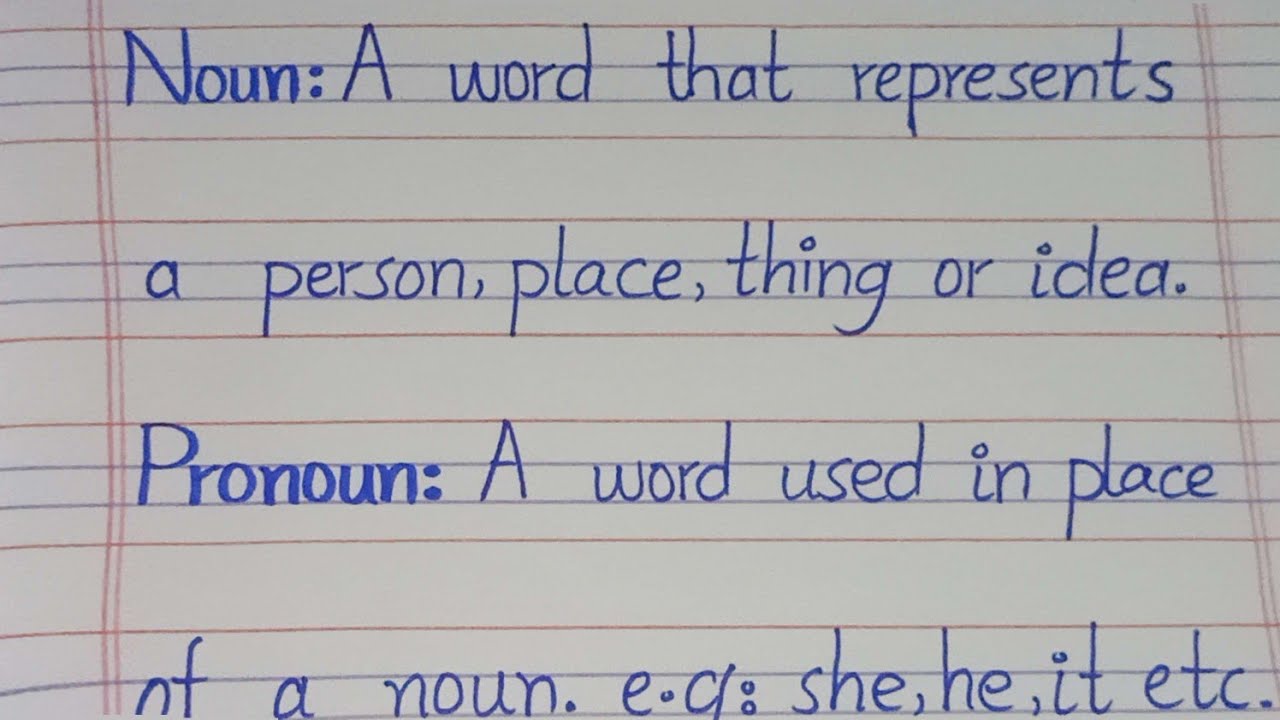 Noun: A word that represents
a person, place, thing or idea.
Pronoun: A word used in place
of a noun. e.g: she, he, it etc.